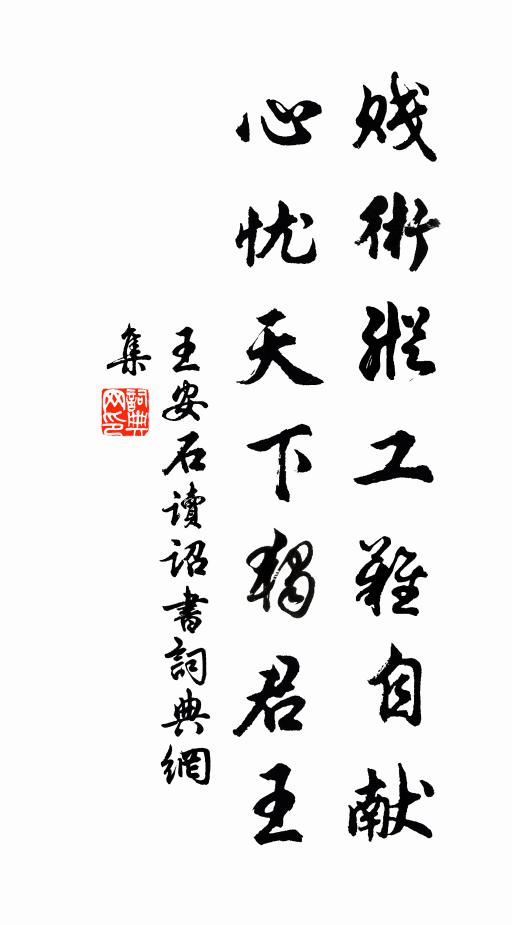 贱術縱工難自献
心忧天下獨君王
王安石讀詔書詞典網
集
詞典
网印